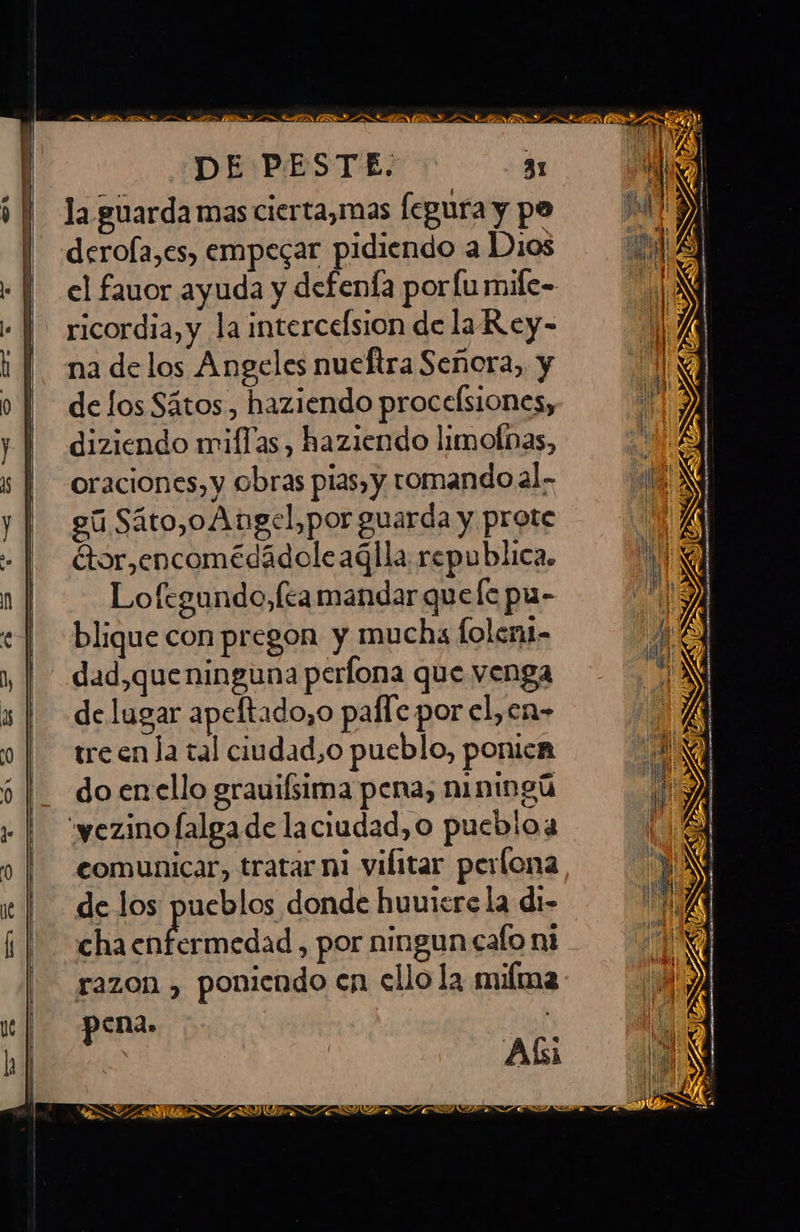 DE PESTE. 31
la guarda mas cierta,mas ſegura y po
deroſa,es, empeçar pidiendo a Dios
el fauor ayuda y defenſa por ſu miſe-
ricordia,y la interceſsion de la Rey-
na de los Angeles nueſtra Señora, y
de los Sãtos, haziendo proceſsiones,
diziendo miſſas, haziendo limoſnas,
oraciones,y obras pias,y tomando al-
gũ Sãto,o Angel,por guarda y prote
ctor,encomẽdãdole aq̃lla republica.
Loſegundo,ſea mandar que ſe pu-
blique con pregon y mucha ſoleni-
dad,que ninguna perſona que venga
de lugar apeſtado,o paſſe por el,en-
tre en la tal ciudad,o pueblo, ponien
do en ello grauiſsima pena; ni ningũ
vezino ſalga de la ciudad, o pueblo a
comunicar, tratar ni viſitar perſona
de los pueblos donde huuiere la di-
cha enfermedad, por ningun caſo ni
razon, poniendo en ello la miſma
pena.
Aſsi